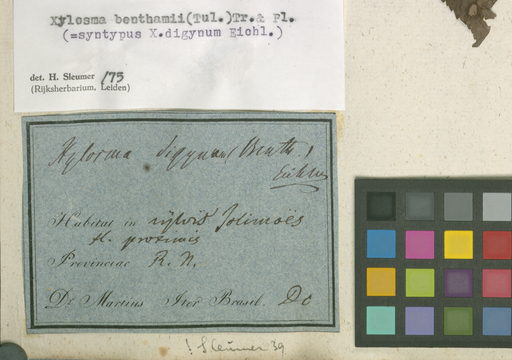 Xylosma benthamii(Tul.)Tr.& Pl.
(=syntypus X.digynum Eichl.)
det. H. Sleumer 175
(Rijksherbarium, Leiden)
Xylosma digynum (Benth.)
Eichler
Habitat in sylvis Solimoës
fl. proximis
Provinciae R. N.
Dr. Martius Iter Brasil. Do
! Sleumer 39